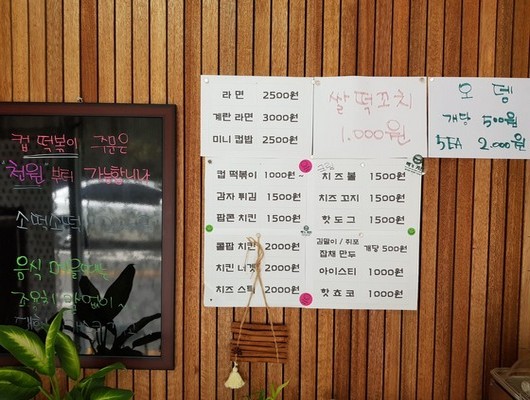 컵 떡볶이 주문은
"천원" 부터 가능합니다
소떡소떡
음식
라면 2500원
계란 라면 3000원
미니 컵밥 2500원
쌀 떡꼬치
1.000원
오뎅
개당 500원
5EA 2.000원
컵 떡볶이 1000원~
감자 튀김 1500원
팝콘 치킨 1500원
치즈 볼 1500원
치즈 꼬지 1500원
핫 도그 1500원
콜팝 치킨 2000원
치킨 너겟 2000원
치즈 스틱 2000원
김말이 / 쥐포
잡채 만두 개당 500원
아이스티 1000원
핫 쵸코 1000원